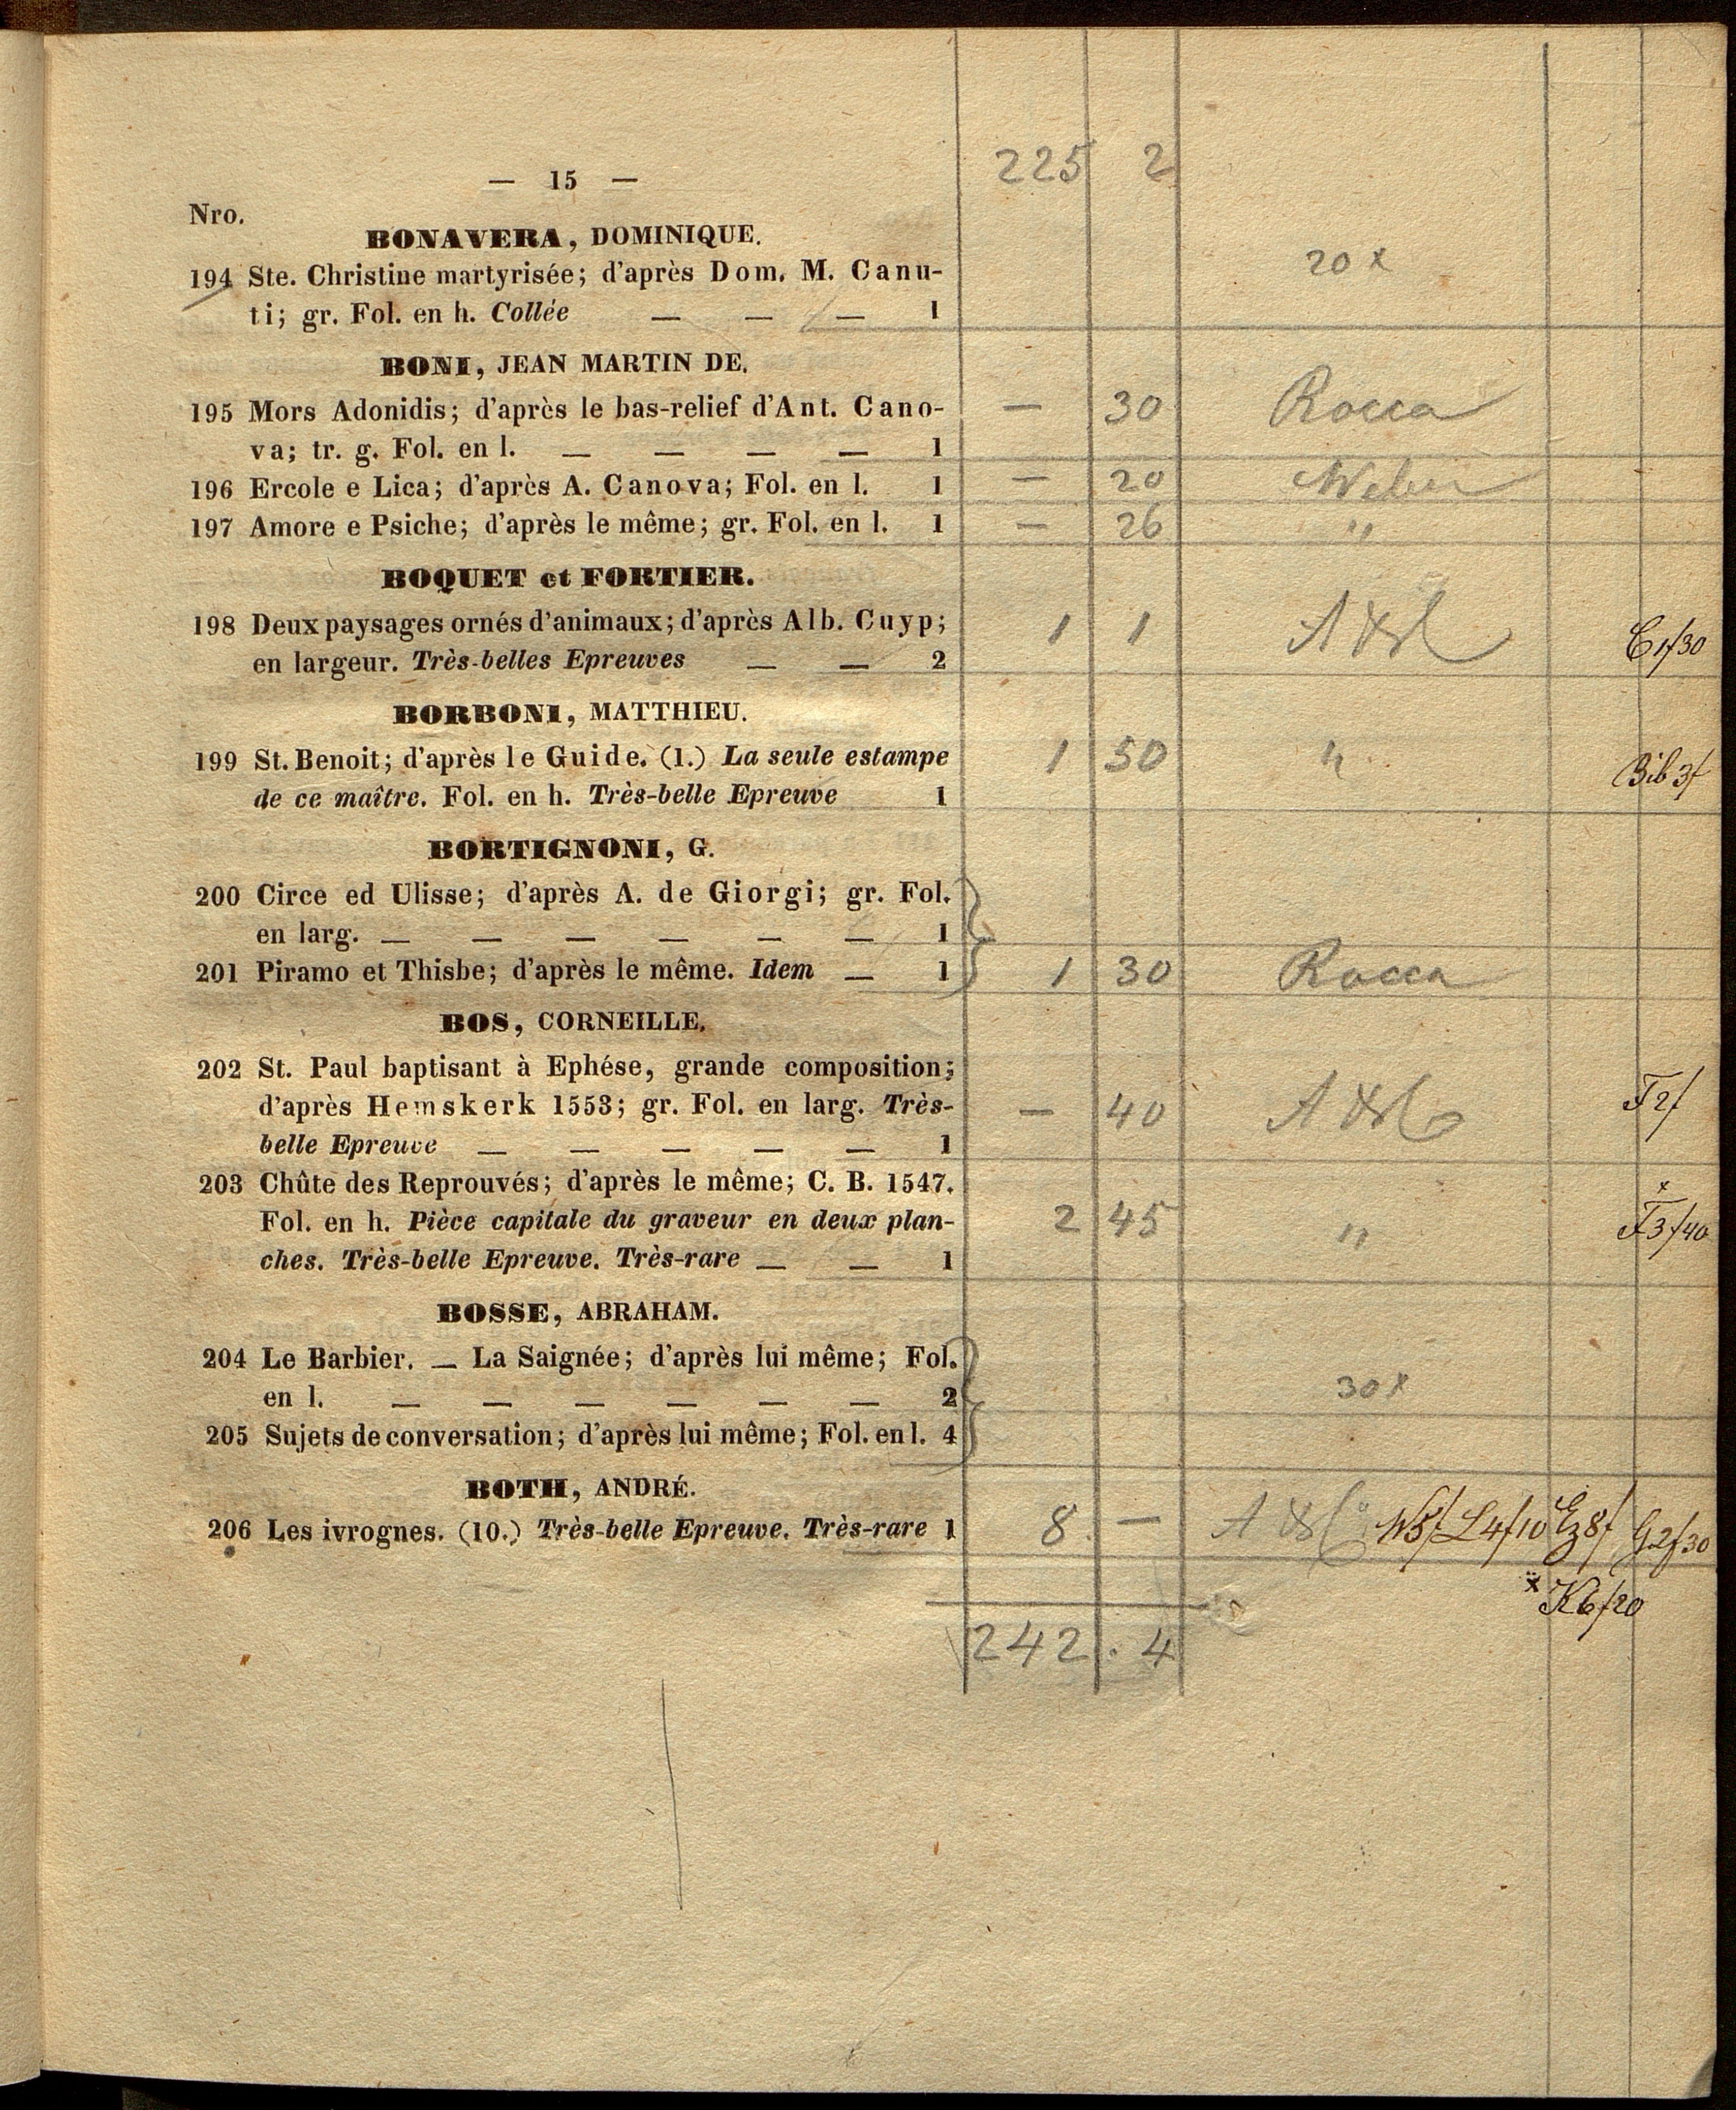 225 2
— 15 —
Nro.
BONAVERA, DOMINIQUE.
194 Ste. Christine martyrisée; d'après Dom. M. Canu-
ti; gr. Fol. en h. Collée — — — 1
20 x
BONI, JEAN MARTIN DE.
195 Mors Adonidis; d'après le bas-relief d'Ant. Cano- — 30 Rocca
va; tr. g. Fol. en l. — — — — 1
196 Ercole e Lica; d'après A. Canova; Fol. en l. 1 — 20 Weber
197 Amore e Psiche; d'après le même; gr. Fol. en l. 1 — 26 "
BOQUET et FORTIER.
198 Deux paysages ornés d'animaux; d'après Alb. Cuyp; 1 1
en largeur. Très-belles Epreuves — — 2 C 1f30
BORBONI, MATTHIEU.
199 St. Benoit; d'après le Guide. (1.) La seule estampe 1 50 "
de ce maître. Fol. en h. Très-belle Epreuve 1 Bib 3f
BORTIGNONI, G.
200 Circe ed Ulisse; d'après A. de Giorgi; gr. Fol.
en larg. — — — — — — 1
201 Piramo et Thisbe; d'après le même. Idem — 1 1 30 Rocca
BOS, CORNEILLE.
202 St. Paul baptisant à Ephése, grande composition;
d'après Hemskerk 1553; gr. Fol. en larg. Très- — 40 F 2f
belle Epreuve — — — — — 1
203 Chûte des Reprouvés; d'après le même; C. B. 1547.
Fol. en h. Pièce capitale du graveur en deux plan- 2 45 " x F3f40
ches. Très-belle Epreuve. Très-rare — — 1
BOSSE, ABRAHAM.
204 Le Barbier. — La Saignée; d'après lui même; Fol.
en l. — — — — — — 2
30 x
205 Sujets de conversation; d'après lui même; Fol. en l. 4
BOTH, ANDRÉ.
206 Les ivrognes. (10.) Très-belle Epreuve. Très-rare 1 8 — L4f10 8f G2f30
x K6f20
242 . 4